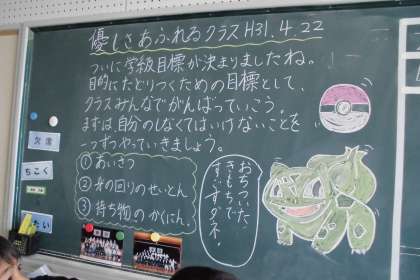 優しさあふれるクラス H31.4.22
ついに学級目標が決まりましたね。
目的にたどりつくための目標として、
クラスみんなでがんばっていこう。
まずは、自分のしなくてはいけないことを
一つずつやっていきましょう。
① あいさつ
② 身の回りのせいとん
③ 持ち物のかくにん。
おちついた
きもちで
すごすダネ。
欠席
ちこく